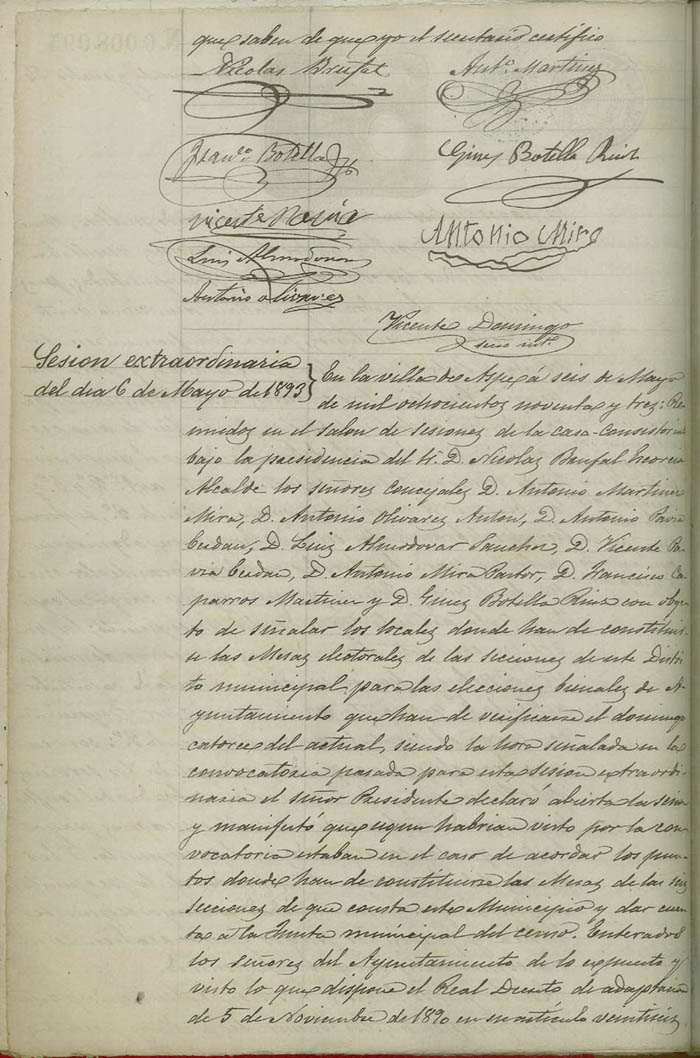 que saben de que yo el secretario certifico
Nicolas Brufal
Antº Martinez
Franco Botella
Gines Botella Ruiz
Vicente Pavia
Antonio Miro
Luis Almodovar
Antonio Olivarez
Vicente Domingo
secro intº
Sesion extraordinaria
del dia 6 de Mayo de 1893
En la villa de Aspe á seis de Mayo
de mil ochocientos noventa y tres: Re-
unidos en el salon de sesiones de la casa-Consistorial
bajo la presidencia del Sr. D. Nicolas Brufal
Alcalde los señores Concejales D. Antonio Martinez
Mira, D. Antonio Olivarez Anton, D. Antonio Pavia
Cerdan, D. Luis Almodovar Sanchez, D. Vicente Pa-
via Cerdan, D. Antonio Mira Pastor, D. Francisco Ca-
parros Martinez y D. Gines Botella Ruiz con obje-
to de señalar los locales donde han de constituir-
se las Mesas electorales de las secciones de este Distri-
to municipal para las elecciones bienales de A-
yuntamiento que han de verificarse el domingo
catorce del actual, siendo la hora señalada en la
convocatoria pasada para esta sesion extraordi-
naria el señor Presidente declaró abierta la sesion
y manifestó que segun habrian visto por la con-
vocatoria estaban en el caso de acordar los pun-
tos donde han de constituirse las Mesas de las
secciones de que consta este Municipio y dar cuen-
ta a la Junta municipal del censo. Enterados
los señores del Ayuntamiento de lo expuesto y
visto lo que dispone el Real Decreto de adaptacion
de 5 de Noviembre de 1890 en su articulo veintiseis